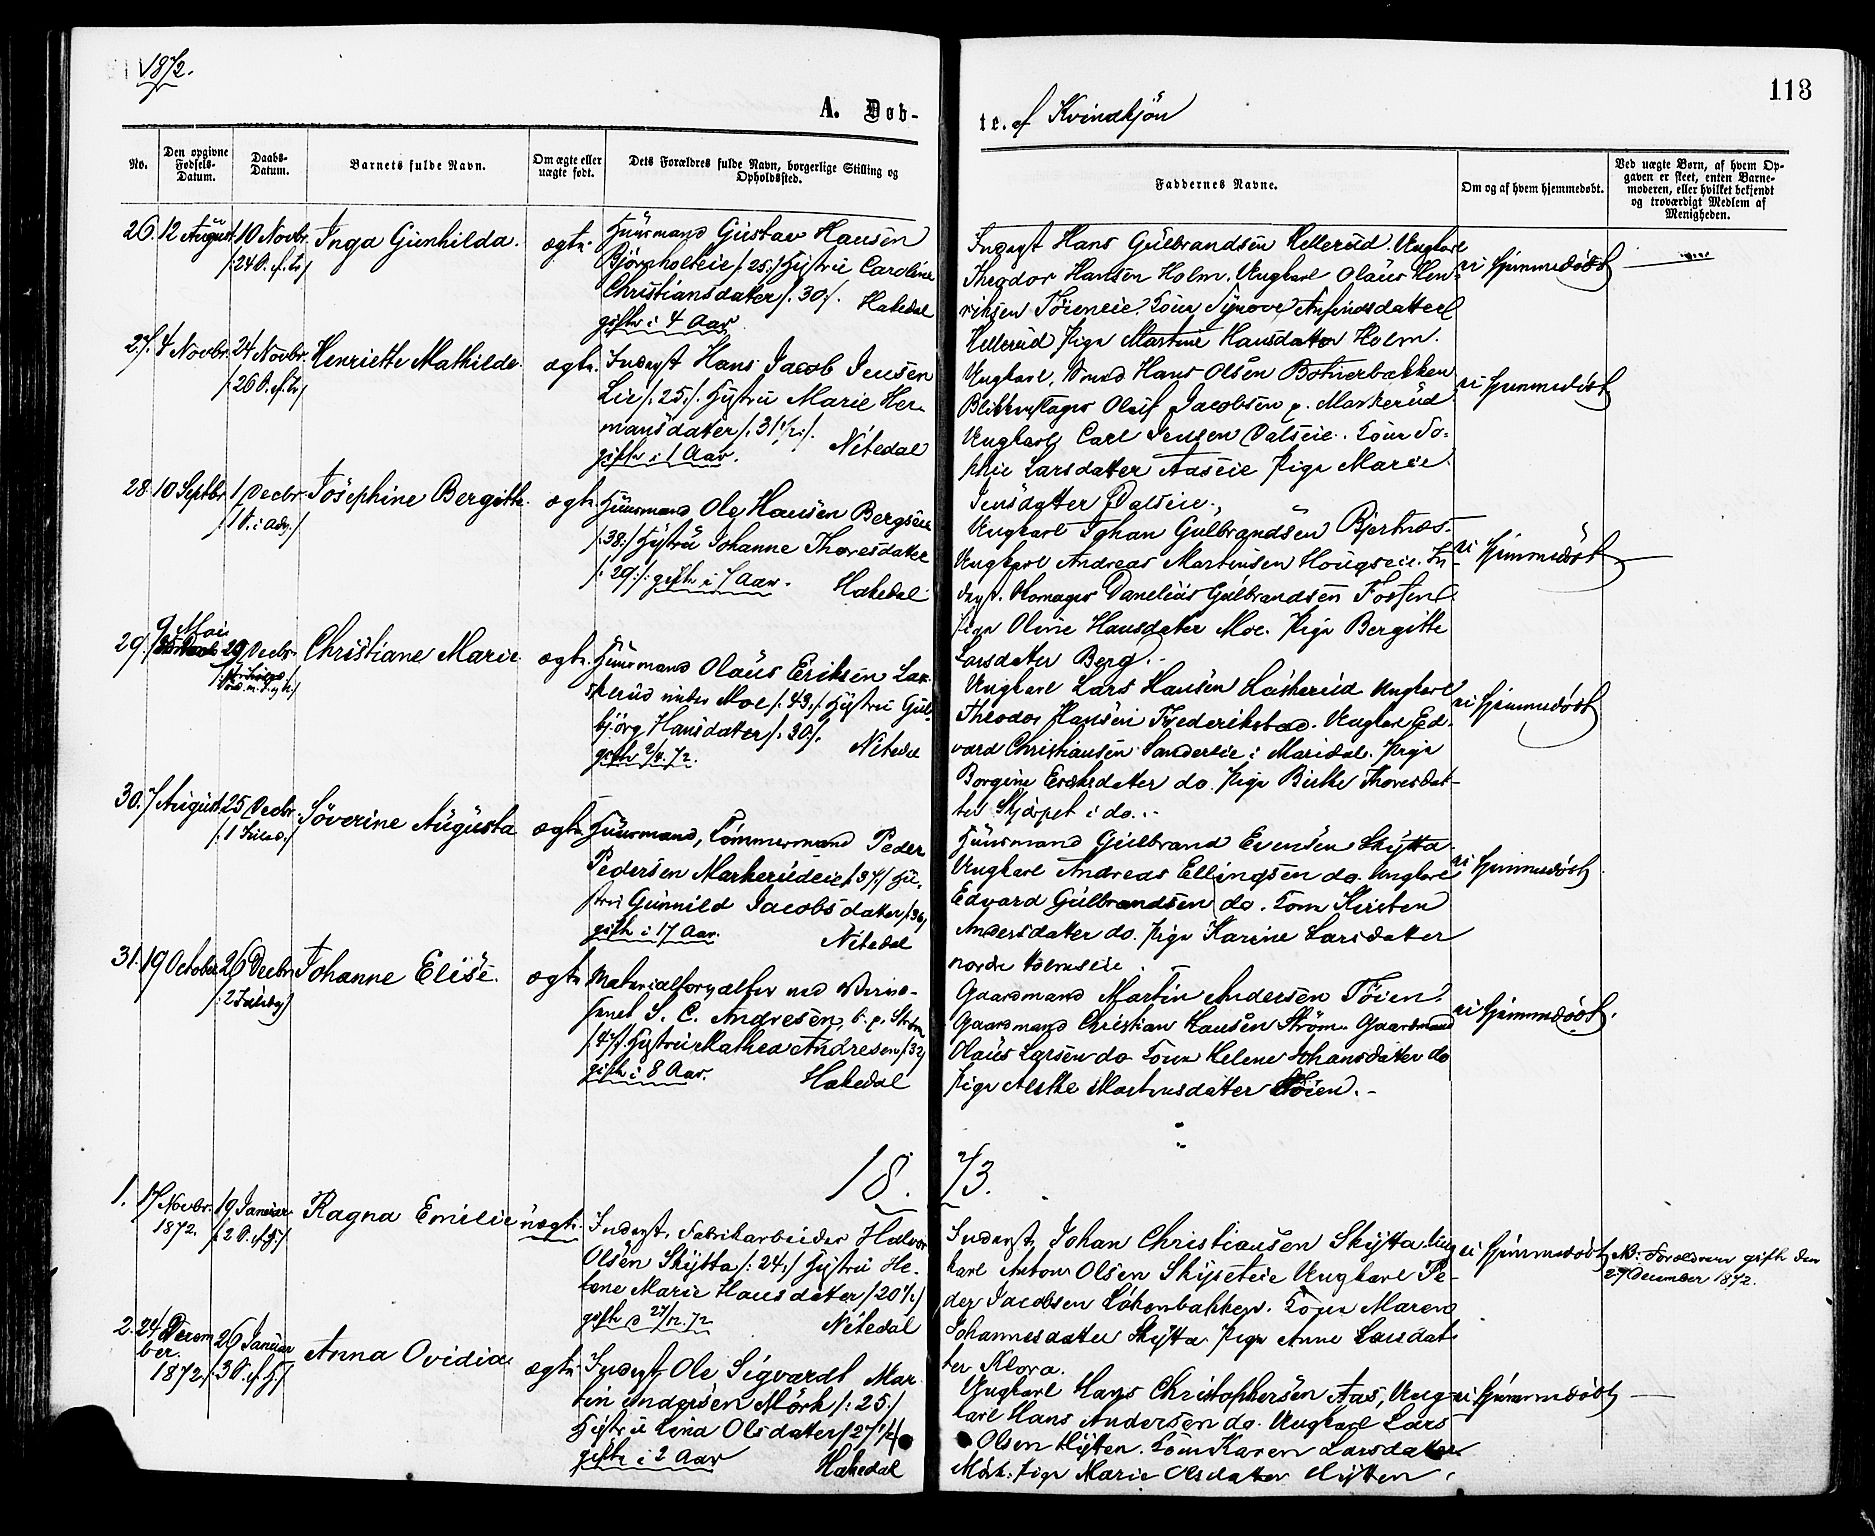 1872.
113
A. Døb-
te. af Kvindkjøn
No.
Den opgivne Fødsels-Datum.
Daabs-Datum.
Barnets fulde Navn.
Om ægte eller uægte født.
Dets Forældres fulde Navn, borgerlige Stilling og Opholdssted.
Faddernes Navne.
Om og af hvem hjemmedøbt.
Ved uægte Børn, af hvem Op-
gaven er skeet, enten Barne-
moderen, eller hvilket bekjendt
og troværdigt Medlem af
Menigheden.
26. 12 August 10 Novbr. Inga Gunhilda. ægte.
/24 S. e. Tr/
Huusmand Gustav Hansen
Bjørnholteie /:25:/ Hustru Caroline
Christiansdatter /:30:/. Hakedal
gifte i 4 Aar
Inderst Hans Gulbrandsen Hellerud. Ungkarl
Theodor Hansen Holm. Ungkarl Olaus Hen-
riksen Tøieneie. Kone Synøve Anfindsdatter
Hellerud Pige Martine Hansdatter Holm.
ei hjemmedøbt
27. 4 Novbr. 24 Novbr. Henriette Mathilde. ægte.
/26 S. e. Tr/
Inderst Hans Jacob Jensen
Lie /:25:/. Hustru Marie Her-
mansdatter /:31½:/.
gifte i 1 Aar. Nitedal
Ungkarl, Smed Hans Olsen Botnerbakken
Blikkenslager Oluf Jacobsen p. Markerud
Ungkarl Carl Jensen Dalseie. Kone So-
phie Larsdatter Aaseie Pige Marie
Jensdatter Dalseie.
ei hjemmedøbt
28. 10 Septbr. 1 Decbr. Josephine Bergitte. ægte.
/:1 S. i Adv:/
Huusmand Ole Hansen Bergseie
/:38:/ Hustru Johanne Thoresdatter
/:29:/: gifte i 7 Aar. Hakedal
Ungkarl Johan Gulbrandsen Bjertnæs-
Ungkarl Andreas Martinsen Hougseie. In-
derst. Skomager Danelius Gulbrandsen Fossen
Pige Oline Hansdatter Moe. Pige Bergitte
Larsdatter Berg.
ei hjemmedøbt
29. 9 Mai 29 Decbr. Christiane Marie. ægte.
Huusmand Olaus Eriksen Las-
kerud under Moe /:43:/. Hustru Gul-
bjørg Hansdatter /:30:/.
gifte 2/4. 72. Nitedal
Ungkarl Lars Hansen Laskerud Ungkarl
Theodor Hansen Frederikstad. Ungkarl Ed-
vard Christiansen Sandereie i Maridal. Pige
Borgine Eriksdatter do. Pige Birthe Thoresdat-
ter Skjærpet i do.
ei hjemmedøbt
30. 7 August 25 Decbr. Søverine Augusta ægte
/:1 Juled:/
Huusmand, Tømmermand Peder
Pedersen Markerudeie /:37:/ Hu-
stru Gunnild Jacobsdatter /:36/
gifte i 17 Aar. Nitedal
Huusmand Gulbrand Evensen Skytta
Ungkarl Andreas Ellingsen do. Ungkarl
Edvard Gulbrandsen do. Kone Kirsten
Andersdatter do. Pige Karine Larsdatter
nordre Holmseie.
ei hjemmedøbt
31. 19 October 26 Decbr. Johanne Elise. ægte
/:2 Juledag/
Materialforvalter ved
J. C. Andresen,
/:47/. Hustru Mathea Andresen /:32/
gifte i 8 Aar. Hakedal
Gaardmand Martin Andersen Tøien.
Gaardmand Christian Hansen Strøm. Gaardmand
Olaus Larsen do. Kone Helene Johansdatter do
Pige Alethe Martinsdatter Tøien.
ei hjemmedøbt.
18 73.
1. 17 Novbr. 1872. 19 Januar Ragna Emilie uægte.
/:2 S. e. H:/
Inderst, Fabrikarbeider Halvor
Olsen Skytta /:24:/ Hustru He-
lene Marie Hansdatter /20½/
gifte d 27/12.72 Nitedal
Inderst Johan Christiansen Skytta. Ung-
karl Anton Olsen Skytteeie Ungkarl Pe-
der Jacobsen Løkenbakken. Kone Maren
Johannesdatter Skytta. Pige Anne Larsdat-
ter Mora.
ei hjemmedøbt
NB: Forældrene gifte den
27 December 1872.
2. 24 Decem
ber. 1872 26 Januar Anna Ovidia. ægte
/:3 S. e. H/
Inderst Ole Sigvardt Mar-
tin Andersen Mørk /:25:/
Hustru Lina Olsdatter /27½/
gifte i 2 Aar Hakedal
Ungkarl Hans Christophersen Aas, Ung-
karl Hans Andersen do. Ungkarl Lars
Olsen Hytten. Kone Karen Larsdatter
Mørk. Pige Marie Olsdatter Hytten.
ei hjemmedøbt